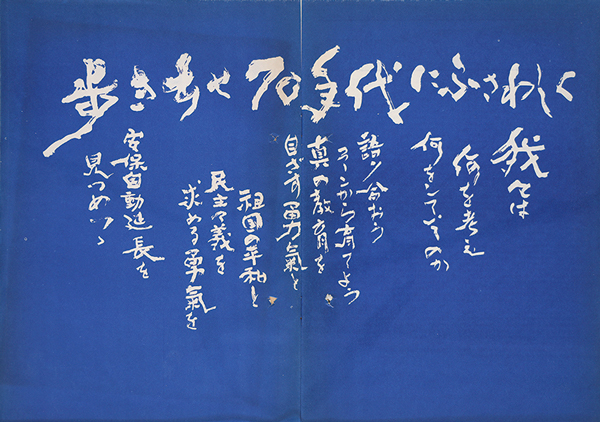 歩き出せ70年代にふさわしく
我々は
何を考え
何を のか
語り合おう
から育てよう
真の教育を
目ざす勇氣と
祖国の平和と
民主々義を
求める勇氣を
安保自動延長を
見つめつゝ